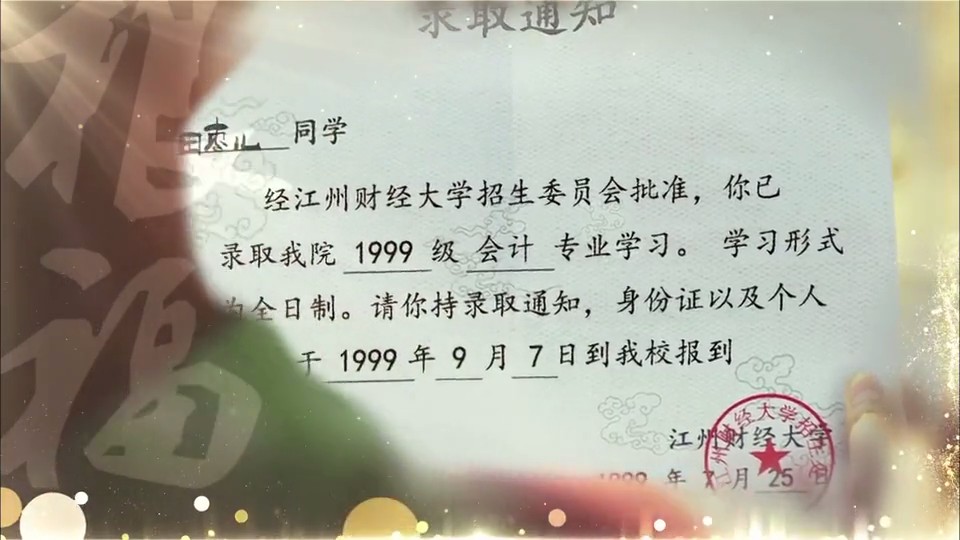 录取通知
田枣儿 同学
经江州财经大学招生委员会批准，你已
录取我院 1999 级 会计 专业学习。 学习形式
为全日制。请你持录取通知，身份证以及个人
于 1999 年 9 月 7 日到我校报到
江州财经大学
1999 年 7 月 25 日
江州财经大学招生
福